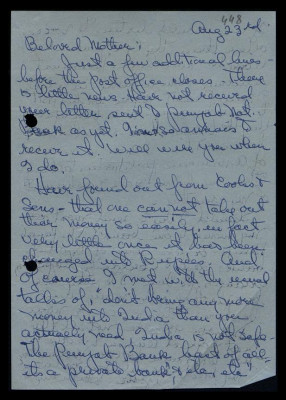 448
Aug 23rd.
Beloved Mother:
Just a few additional lines -
before the post office closes. There
is little news. Have not received
your letter sent to Punjab Nat.
Bank as yet. Am so anxious to
receive it. Will wire you when
I do.
Have found out from Cooks &
Sons - that one cannot take out
their money so easily, in fact
very little once it has been
changed into Rupees. And
of course I met with the usual
tactics of, "don't bring any more
money into India than you
actually need India is not safe.
The Punjab Bank, least of all -
its a private bank & etc, etc"